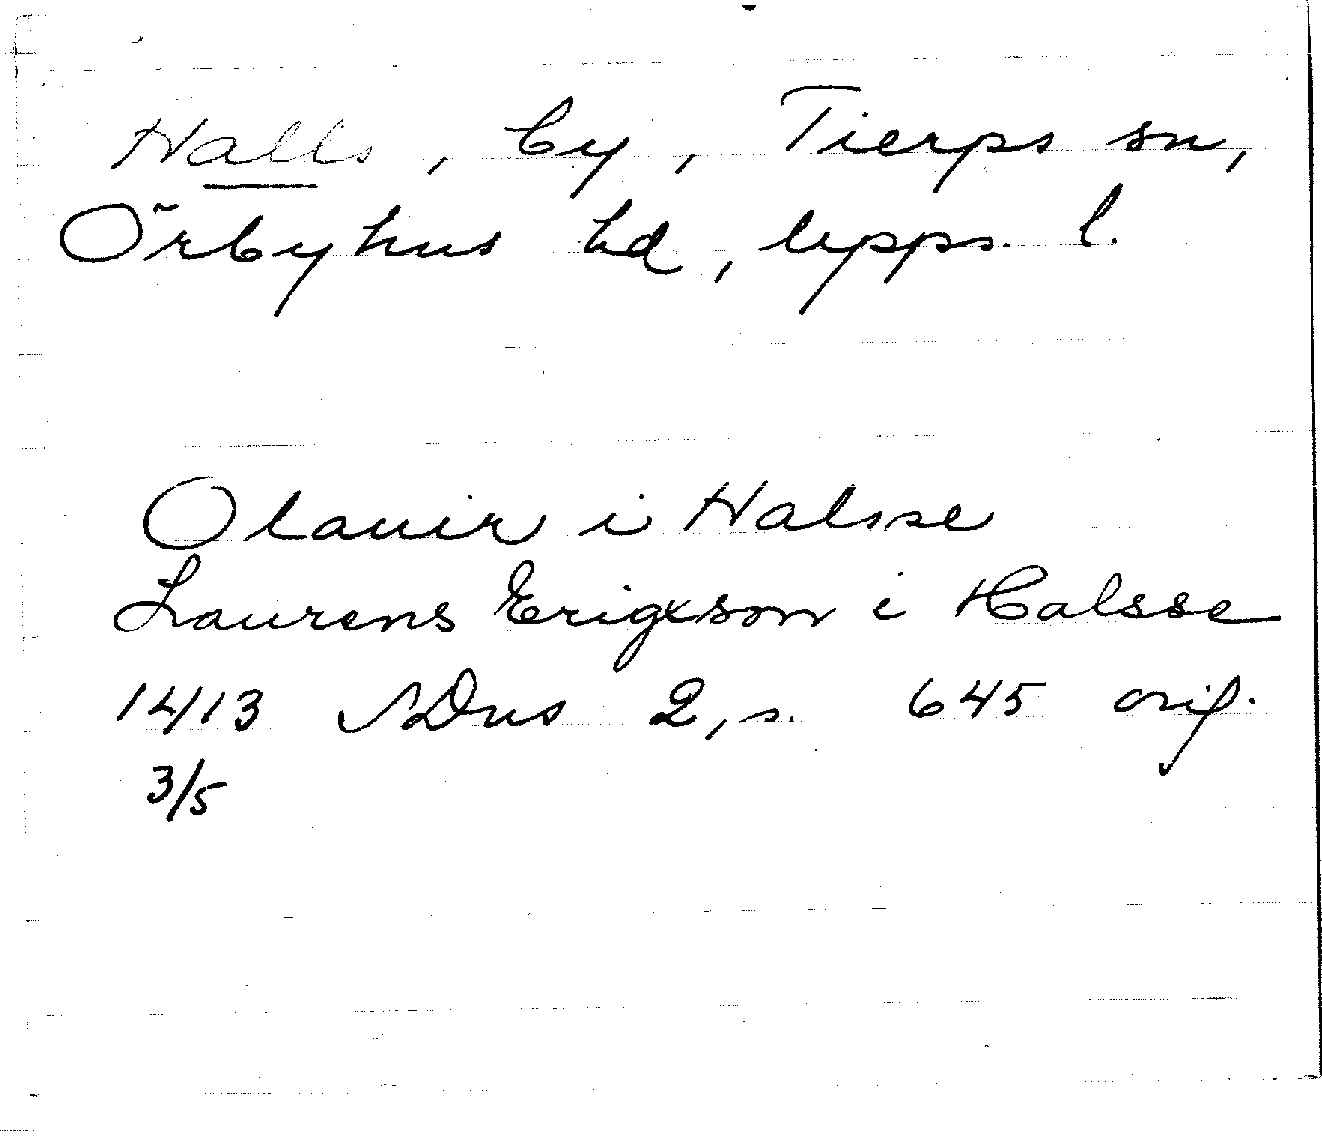 Halls, by, Tierps sn,
Örbyhus hd, Upps. l.
Olauir i Halsse
Laurens Erigxson i Halsse
1413 SDns 2, s. 645 orig.
3/5